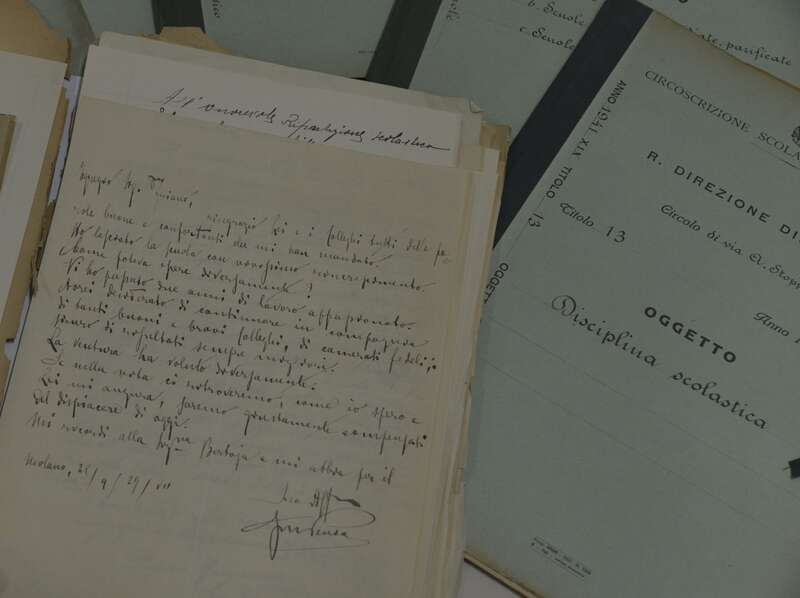 b. Scuole
c. Scuole
parificate
All'onorevole Ripartizione scolastica
Egregio Sig.
ringrazio Lei e i colleghi tutti delle pa-
role buone e confortanti che mi han mandato.
Ho lasciato la scuola con vivissimo rincrescimento.
Come poteva essere diversamente?
Vi ho passato due anni di lavoro appassionato.
Avrei desiderato di continuare in compagnia
di tanti buoni e bravi colleghi, di camerati fedeli,
di risultati sempre migliori.
La ventura ha voluto diversamente.
Se nella vita ci ritroveremo, come io spero e
Lei mi augura, saremo giustamente compensati
del dispiacere di oggi.
Mi ricordi alla Sig.na Bertoja e mi abbia per il
Suo Aff
Milano, 9/29
CIRCOSCRIZIONE SCOLA
ANNO 1941 XIX TITOLO 13
R. DIREZIONE DI
Titolo 13
Circolo di via A. Stopp
Anno 1
OGGETTO
OGGETTO
Disciplina scolastica